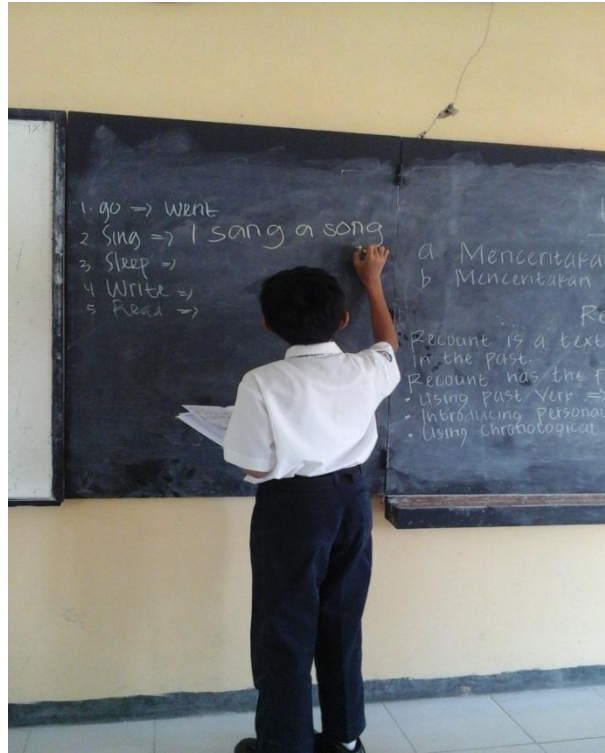 1. go => Went
2 Sing => I sang a song
3 Sleep =>
4 Write =>
5 Read =>
a Menceritakan
b Menceritakan
Recount is a text
in the past.
Recount has the
• Using past Verb =>
• Introducing personal
• Using chronological